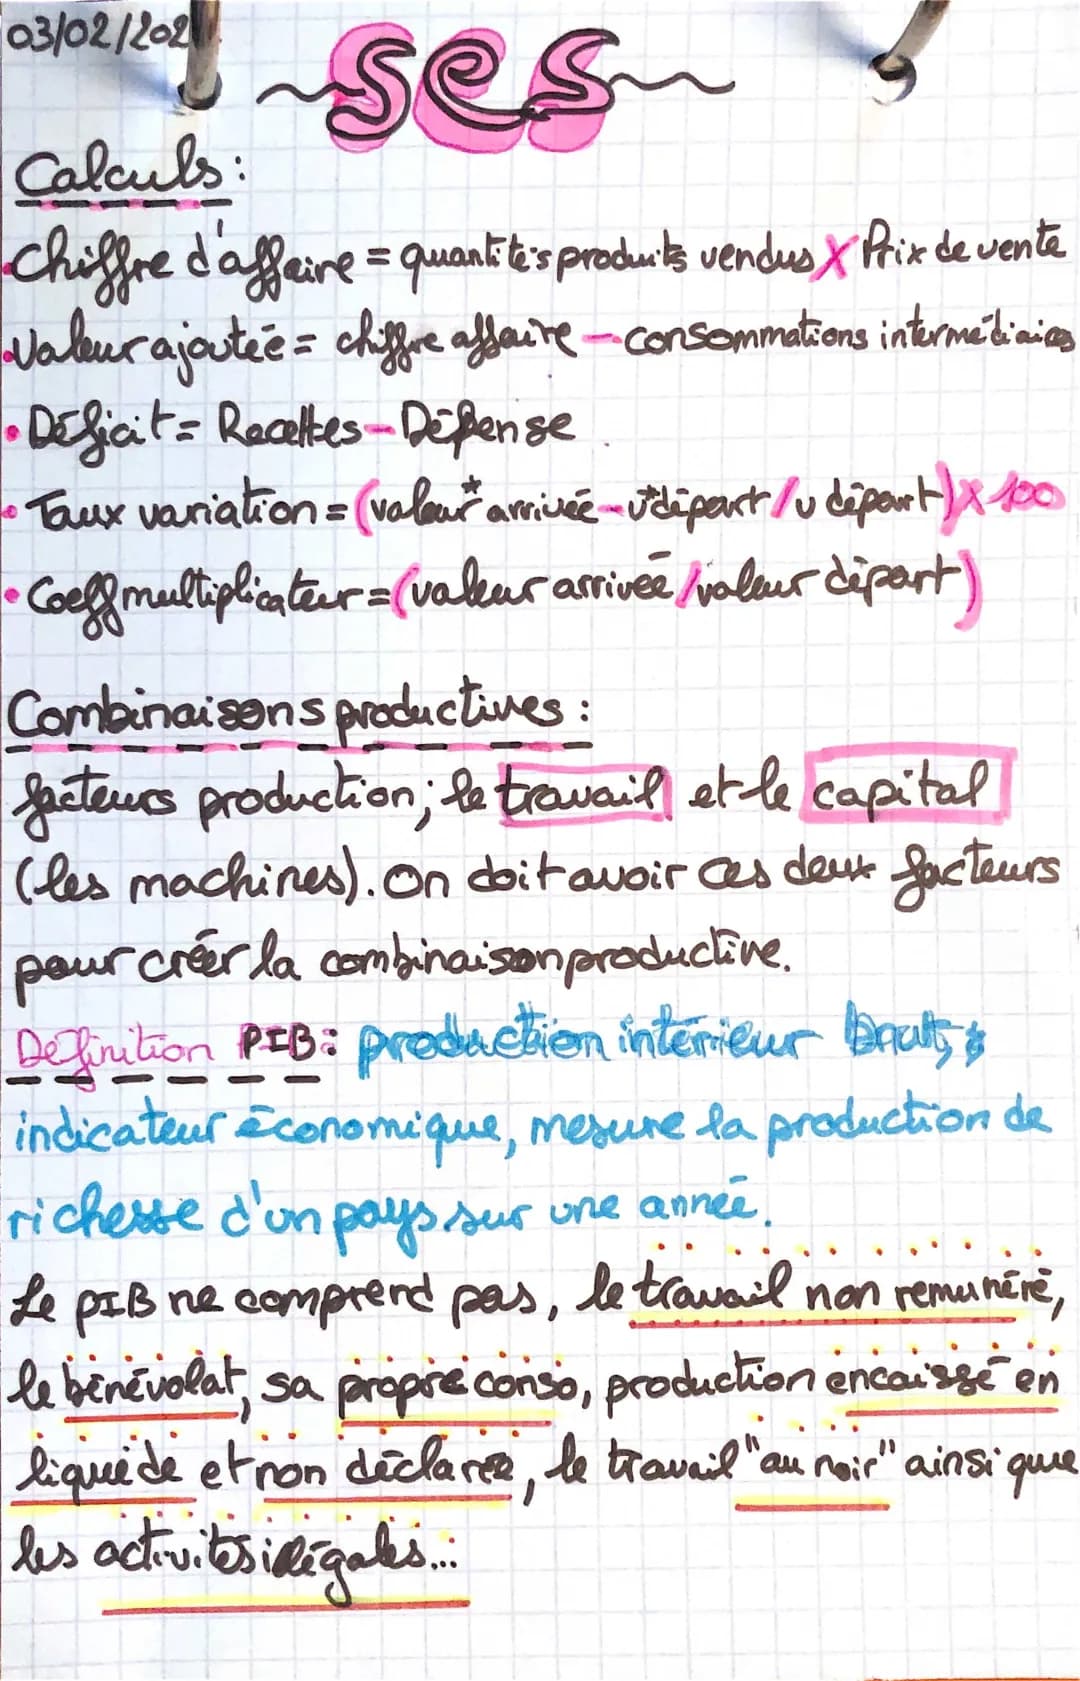 03/02/202
ses
Calculs :
• Chiffre d'affaire = quantités produits vendus X Prix de vente
• Valeur ajoutée = chiffre affaire - consommations intermédiaires
• Déficit = Recettes - Dépense
• Taux variation = (valeur* arrivée - v* départ / v départ) X 100
• Coeff multiplicateur = (valeur arrivée / valeur départ)
Combinaisons productives :
facteurs production ; le travail et le capital
(les machines). On doit avoir ces deux facteurs
pour créer la combinaison productive.
Définition PIB : production intérieur brut,
indicateur économique, mesure la production de
richesse d'un pays sur une année.
Le PIB ne comprend pas, le travail non remunéré,
le bénévolat, sa propre conso, production encaissé en
liquide et non déclarée, le travail "au noir" ainsi que
les activités illégales...